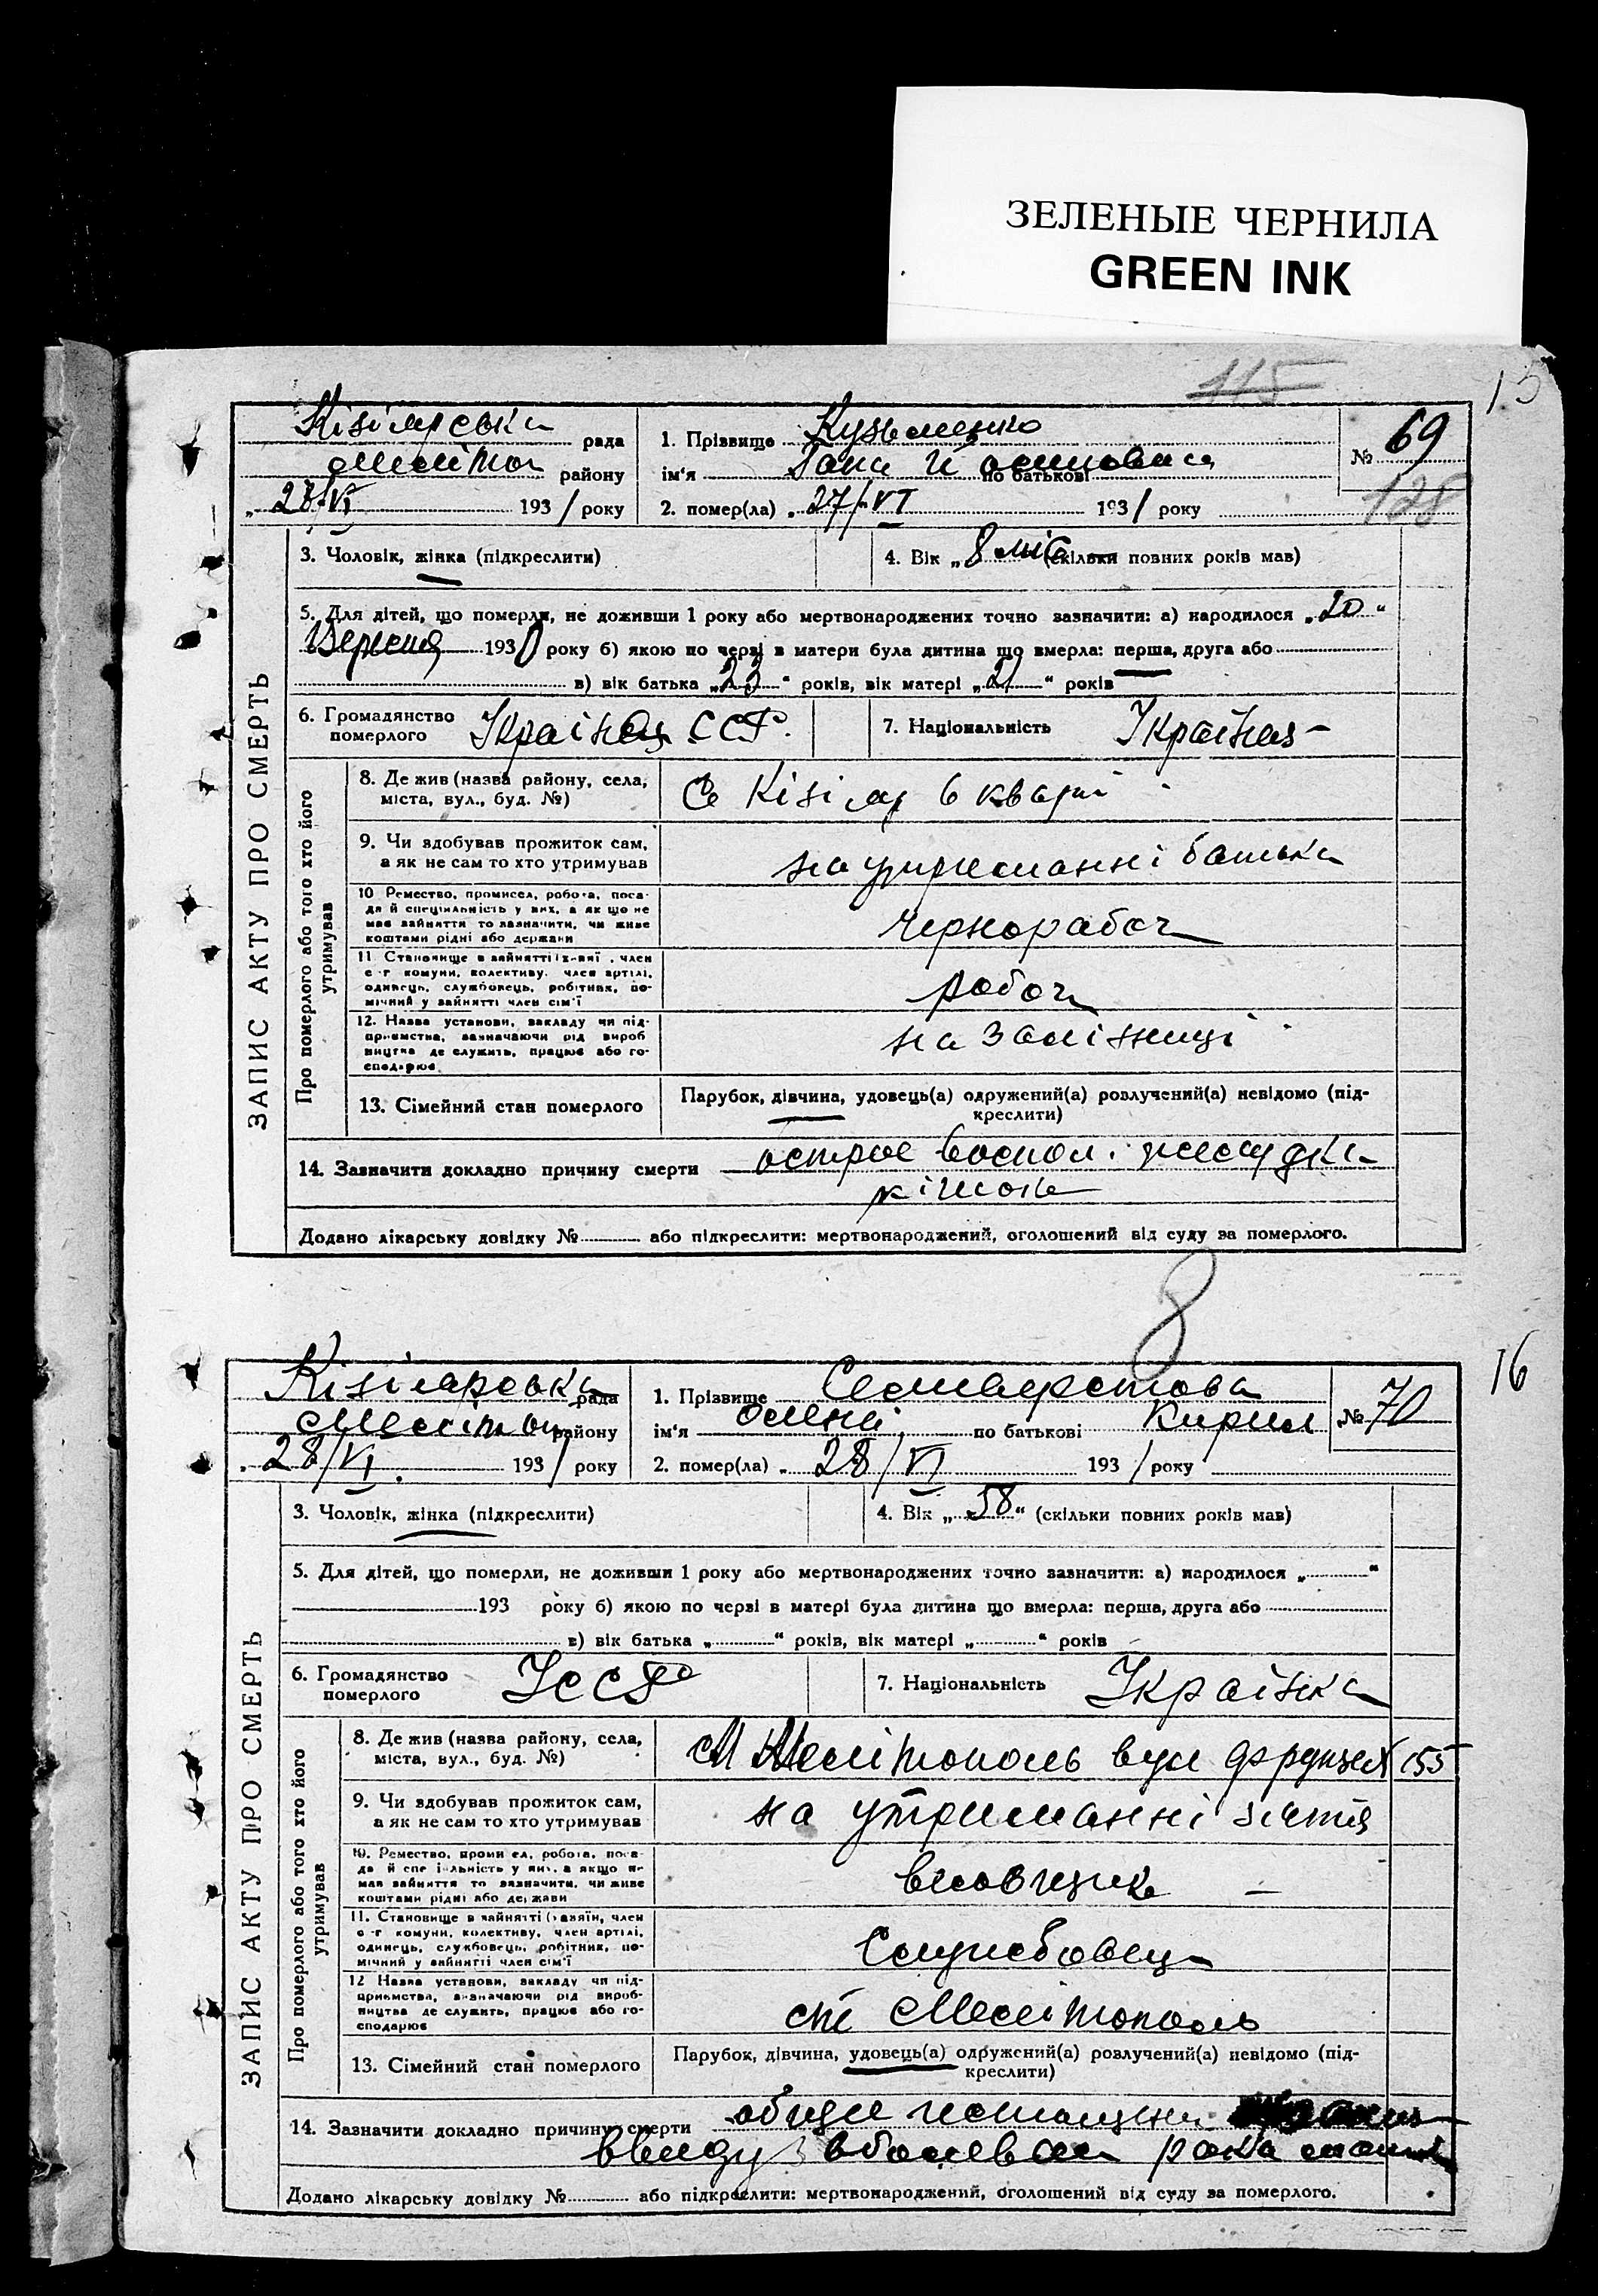 ЗЕЛЕНЫЕ ЧЕРНИЛА
GREEN INK
115
15
Кізіярська рада
Меліто району
28/VI 1931 року
1. Прізвище Кузьменко
ім'я по батькові
2. помер(ла) „27/VI 1931 року
№ 69
128
ЗАПИС АКТУ ПРО СМЕРТЬ
3. Чоловік, жінка (підкреслити)
4. Вік „8 міс (скільки повних років мав)
5. Для дітей, що померли, не доживши 1 року або мертвонароджених точно зазначити: а) народилося „20“
Вересня 1930 року б) якою по черзі в матери була дитина що вмерла: перша, друга або
в) вік батька „23“ років, вік матері „21“ років
6. Громадянство померлого ССР.
7. Національність
Про померлого або того хто його утримував
8. Де жив (назва району, села, міста, вул., буд. №) С Кізіяр 6 кварт
9. Чи здобував прожиток сам, а як не сам то хто утримував на утриманні батька
10 Ремество, промисел, робота, посада й спеціяльність у них, а як що не має зайняття то зазначити, чи живе коштами рідні або держави чернорабоч
11 Становище в зайнятті член с-г комуни, колективу, член артілі, одинець, службовець, робітник, помічний у зайнятті член сім'ї робоч
12. Назва установи, закладу чи підприємства, зазначаючи рід виробництва де служить, працює або господарює на Залізниці
13. Сімейний стан померлого Парубок, дівчина, удовець(а) одружений(а) розлучений(а) невідомо (підкреслити)
14. Зазначити докладно причину смерти острое воспол. желудка
кішок
Додано лікарську довідку № або підкреслити: мертвонароджений, оголошений від суду за померлого.
8
16
Кізіярська рада
Меліто району
28/VI 1931 року
1. Прізвище Семиверстова
ім'я по батькові Кирил
2. помер(ла) „28/VI 1931 року
№ 70
ЗАПИС АКТУ ПРО СМЕРТЬ
3. Чоловік, жінка (підкреслити)
4. Вік „58“ (скільки повних років мав)
5. Для дітей, що померли, не доживши 1 року або мертвонароджених точно зазначити: а) народилося „ “
193 року б) якою по черзі в матері була дитина що вмерла: перша, друга або
в) вік батька „ “ років, вік матері „ “ років
6. Громадянство померлого УССР
7. Національність Українка
Про померлого або того хто його утримував
8. Де жив (назва району, села, міста, вул., буд. №) М Мелітополь вул Фрунзе 155
9. Чи здобував прожиток сам, а як не сам то хто утримував на утриманні зятя
10. Ремество, промисел, робота, посада й спеціяльність у них, а якщо не має зайняття то зазначити, чи живе коштами рідні або держави
11. Становище в зайнятті (хазяїн, член с-г комуни, колективу, член артілі, одинець, службовець, робітник, помічний у зайнятті член сім'ї Службовець
12 Назва установи, закладу чи підприємства, зазначаючи рід виробництва де служить, працює або господарює ст Мелітополь
13. Сімейний стан померлого Парубок, дівчина, удовець(а) одружений(а) розлучений(а) невідомо (підкреслити)
14. Зазначити докладно причину смерти
ввиду рака
Додано лікарську довідку № або підкреслити: мертвонароджений, оголошений від суду за померлого.